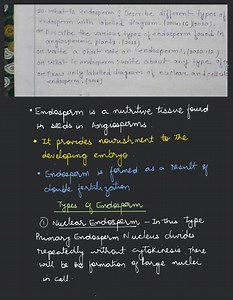 OR What is endosperm? Describe different types of
endosperm with labelled diagram. (2014, 15)
OR Describe the various types of endosperm found in
angiospermic plants. (2021)
OR Write a short note on endosperm.
OR What is endosperm? write about any type of
OR Draw only labelled diagram of nuclear and cellular
endosperm.
• Endosperm is a nutritive tissue found
in seeds in Angiosperms.
• It provides nourishment to the
developing embryo.
• Endosperm is formed as a result of
double fertilization.
Types of Endosperm
① Nuclear Endosperm - In this Type
Primary Endosperm Nucleus divides
repeatedly without cytokinesis. There
will be no formation of large nuclei
in cell.